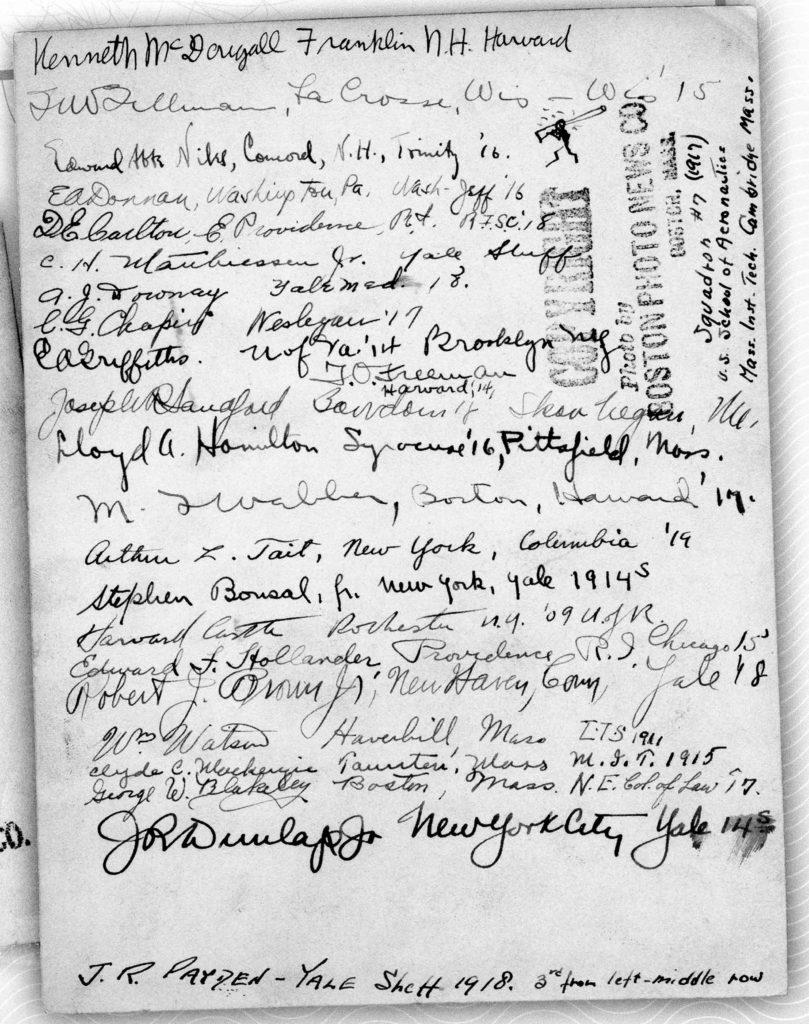 Kenneth McDougall Franklin N.H. Harvard
La Crosse, Wis - Wis '15
Edward Niles, Concord, N.H., Trinity '16.
E A Donnan, Washington, Pa. Wash-Jeff '16
D.E. Carlton, E. Providence, R.I. '18
C. H. Jr. Yale Sheff
A. J. Downay Yale Med. '18.
C. G. Chapin Wesleyan '17
E A Griffiths. U of Va. '14 Brooklyn NY
T. O. Freeman
Harvard, '14,
Joseph Sandford Bowdoin Skowhegan, Me.
Lloyd A. Hamilton Syracuse '16, Pittsfield, Mass.
M. Webber, Boston, Harvard '17.
Arthur L. Tait, New York, Columbia '19
Stephen Bonsal, Jr. New York, Yale 1914 S
Harvard Castle Rochester N.Y. '09 U. of R.
Edward F. Hollander Providence R.I. Chicago 15
Robert J. Brown Jr., New Haven, Conn, Yale '18
Wm Watson Haverhill, Mass 1911
Clyde C. Mackenzie Taunton, Mass M.I.T. 1915
George W. Blakeley Boston, Mass. N.E. Col. of Law '17.
J R Dunlap Jr New York City Yale 14 S
J. R. PAYDEN - YALE Sheff 1918. 3rd from left-middle row
COPYRIGHT
Photo by
BOSTON PHOTO NEWS CO.
BOSTON, MASS.
Squadron #7 (1917)
U.S. School of Aeronautics
Mass. Inst. Tech. Cambridge Mass.
CO.